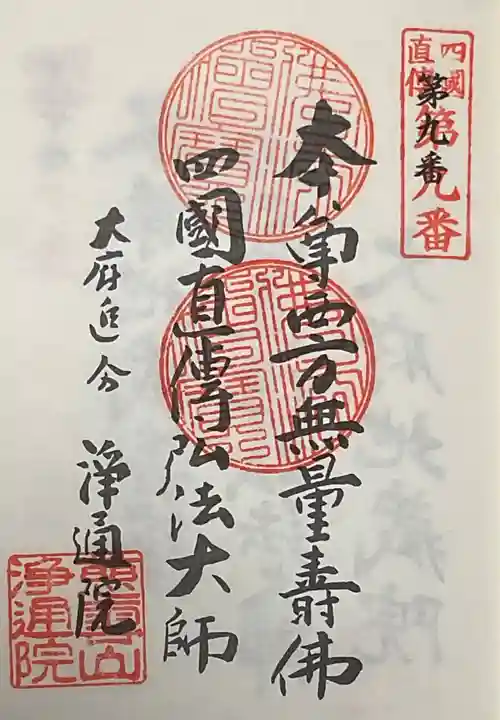 四國
直傳
第九番
第九番
奉拝西方無量壽佛
四國直傳弘法大師
大府追分
浄通院
浄通院